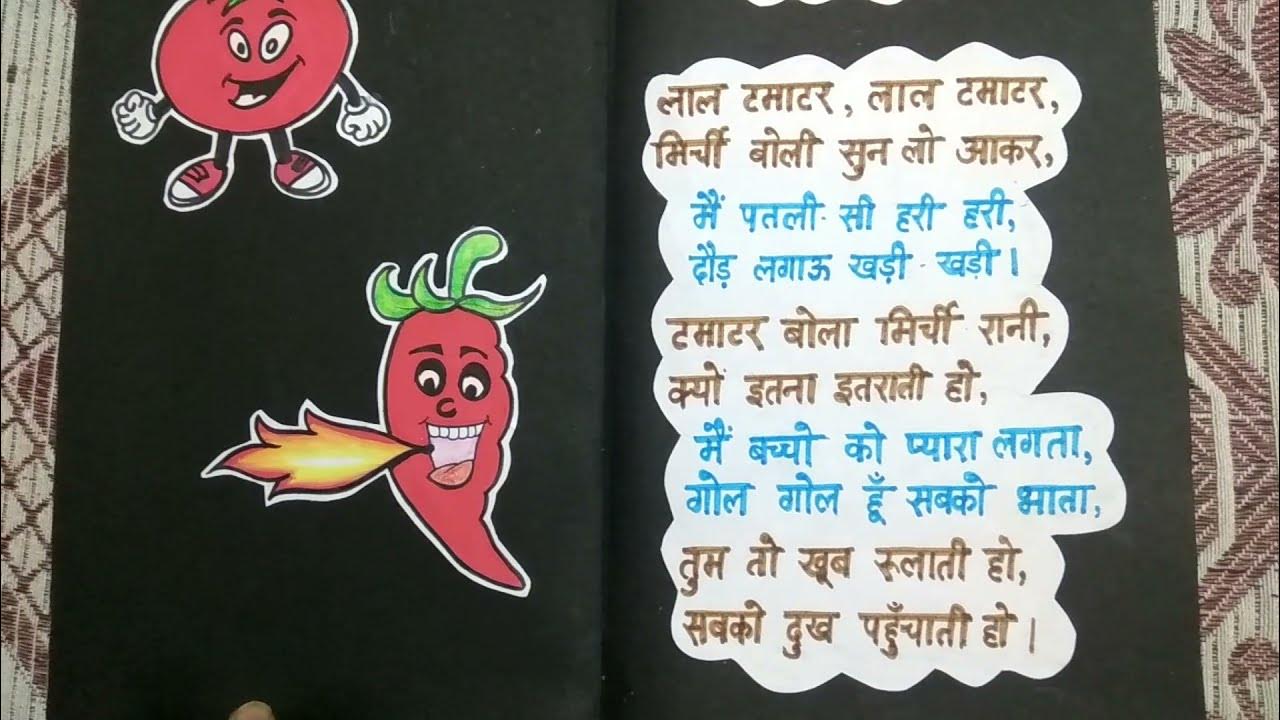 लाल टमाटर, लाल टमाटर,
मिर्ची बोली सुन लो आकर,
मैं पतली सी हरी हरी,
दौड़ लगाऊ खड़ी खड़ी।
टमाटर बोला मिर्ची रानी,
क्यों इतना इतराती हो,
मैं बच्चो को प्यारा लगता,
गोल गोल हूँ सबको भाता,
तुम तो खूब रूलाती हो,
सबको दुख पहुँचाती हो।